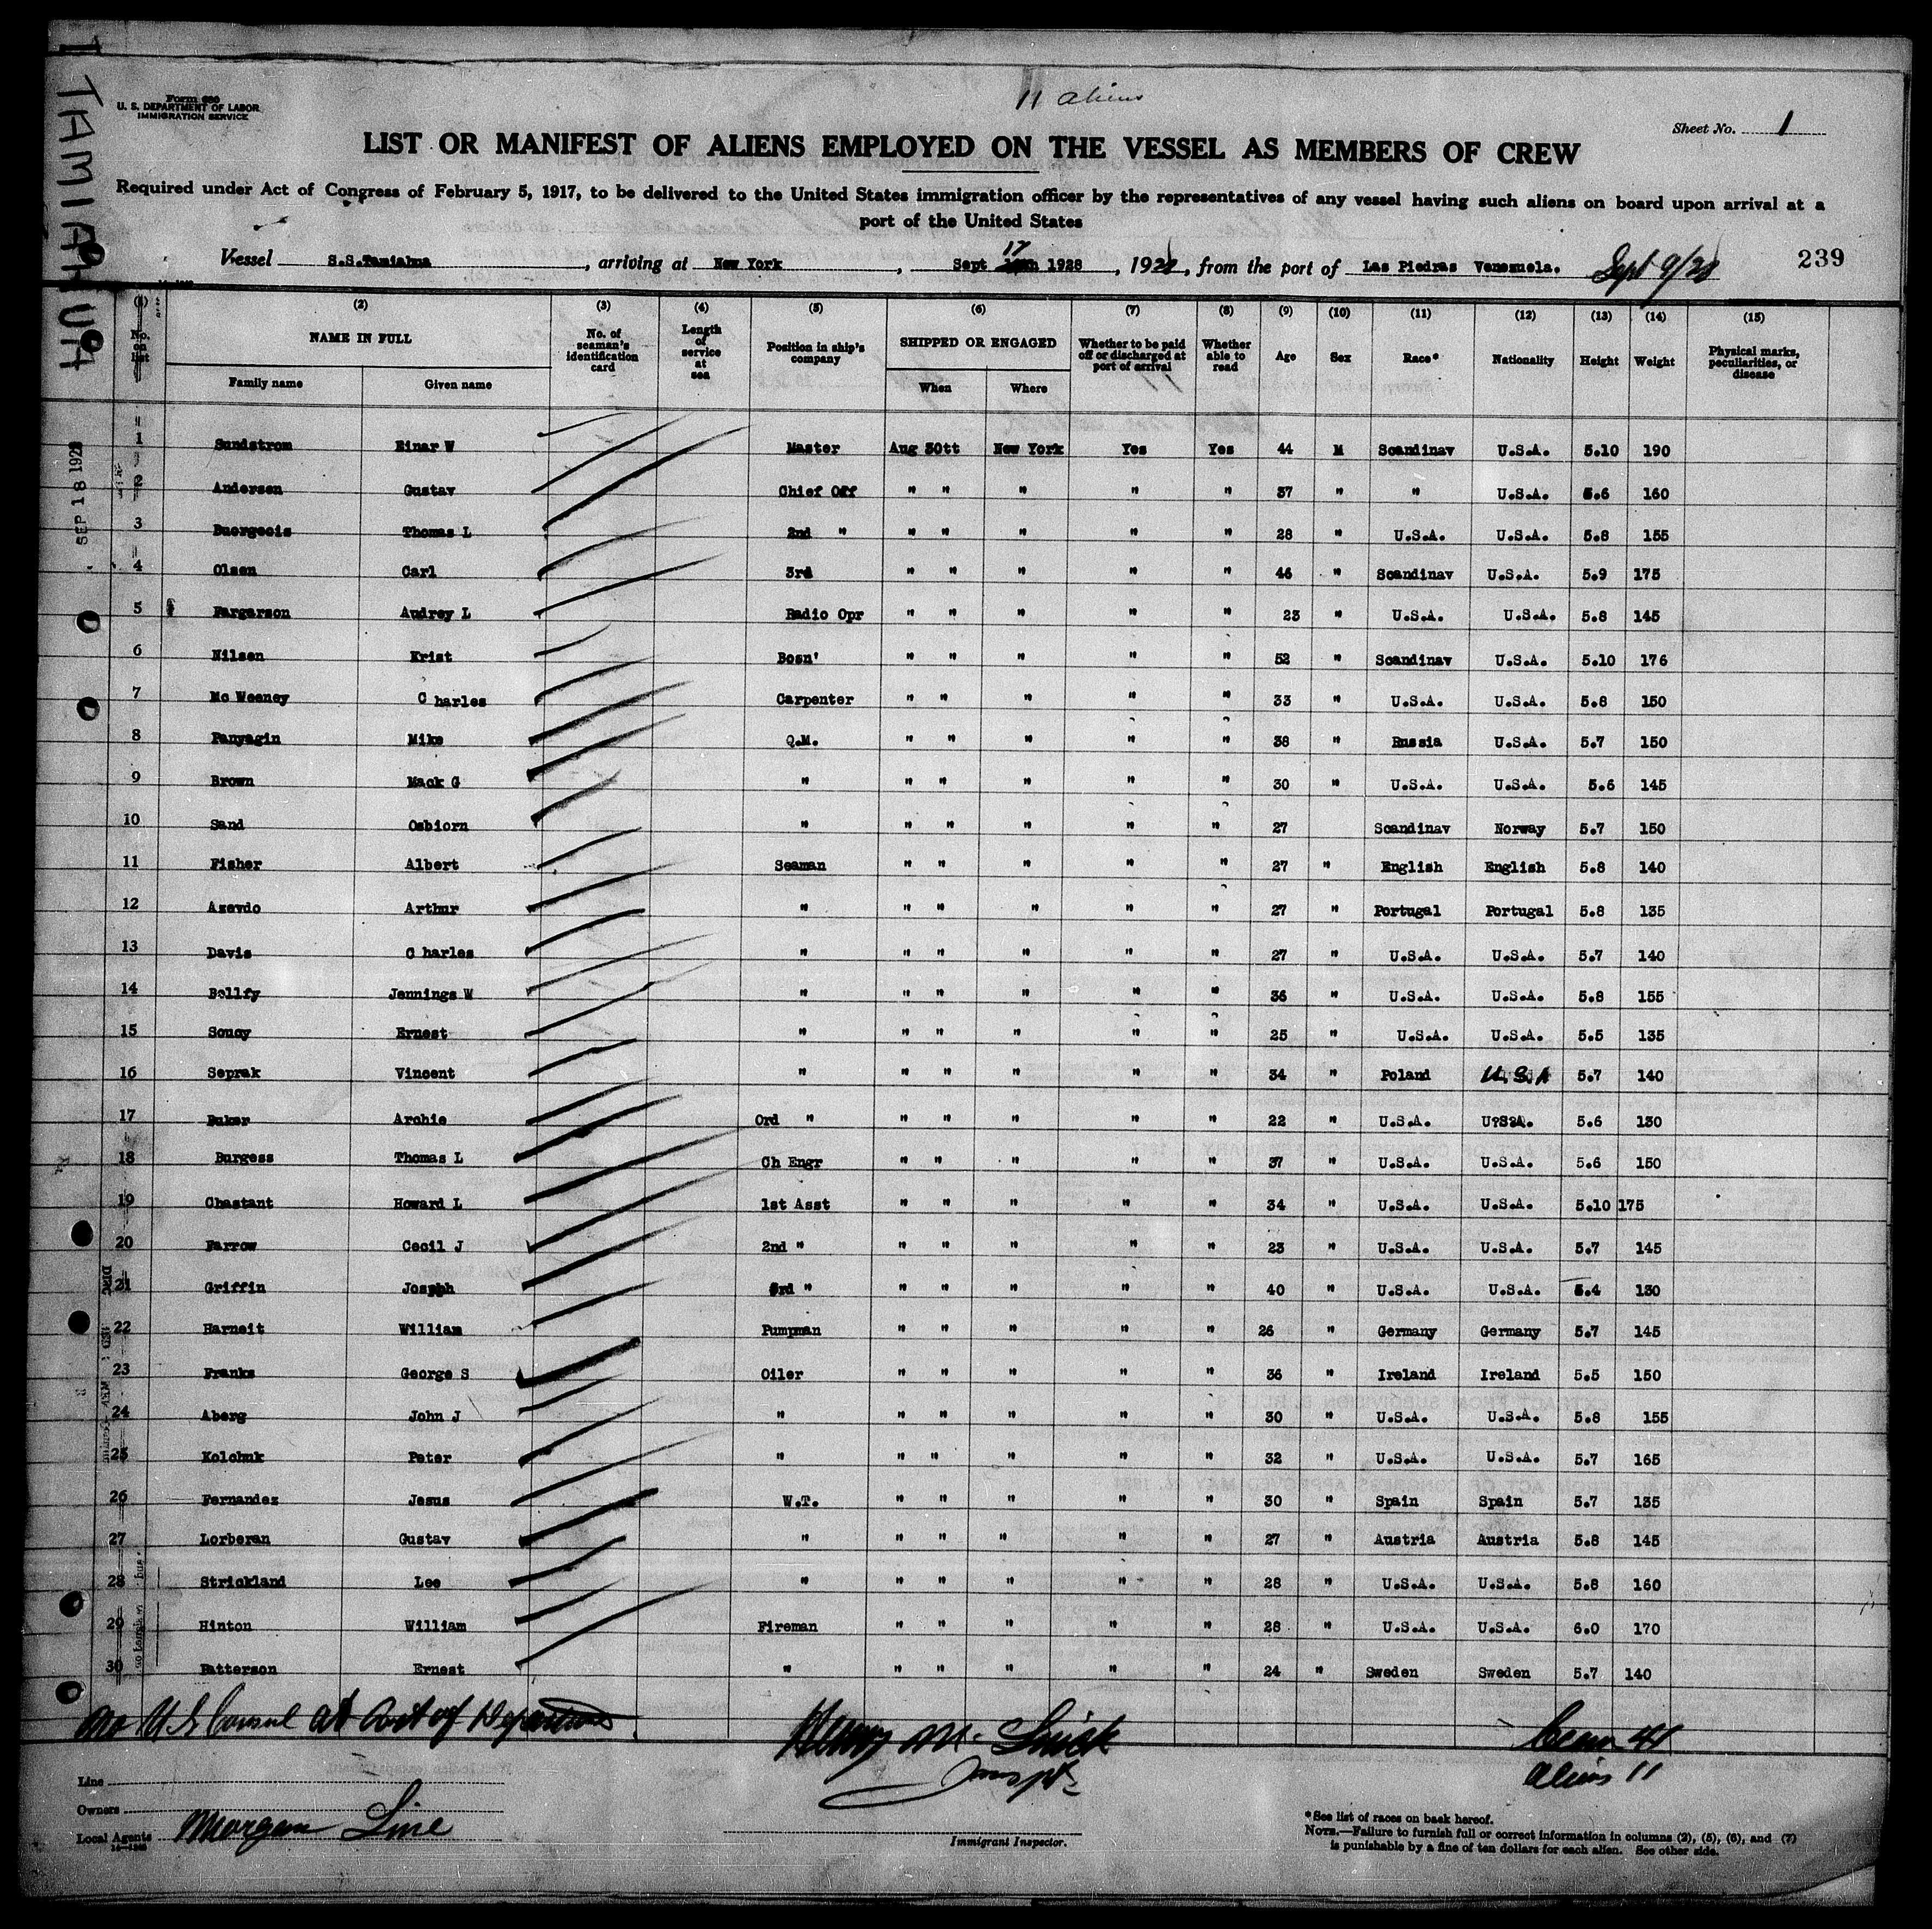 TAMIAHUA
Form 680
U. S. DEPARTMENT OF LABOR
IMMIGRATION SERVICE
11 aliens
Sheet No. 1
LIST OR MANIFEST OF ALIENS EMPLOYED ON THE VESSEL AS MEMBERS OF CREW
Required under Act of Congress of February 5, 1917, to be delivered to the United States immigration officer by the representatives of any vessel having such aliens on board upon arrival at a
port of the United States
Vessel S.S.Tamiahua , arriving at New York , Sept 17 1928 , 1928 , from the port of Las Piedras Venezuela. Sept 9/28 239
(1) (2) (3) (4) (5) (6) (7) (8) (9) (10) (11) (12) (13) (14) (15)
No. on list NAME IN FULL Family name Given name No. of seaman's identification card Length of service at sea Position in ship's company SHIPPED OR ENGAGED When Where Whether to be paid off or discharged at port of arrival Whether able to read Age Sex Race* Nationality Height Weight Physical marks, peculiarities, or disease
SEP 18 1928
1 Sundstrom Einar W Master Aug 30tt New York Yes Yes 44 M Scandinav U.S.A. 5.10 190
2 Andersen Gustav Chief Off " " " " " 37 " " U.S.A. 5.6 160
3 Buorgeois Thomas L 2nd " " " " " " 28 " U.S.A. U.S.A. 5.8 155
4 Olsen Carl 3rd " " " " " 46 " Scandinav U.S.A. 5.9 175
5 Fargerson Audrey L Radio Opr " " " " " 23 " U.S.A. U.S.A. 5.8 145
6 Nilsen Krist Bosn' " " " " " 52 " Scandinav U.S.A. 5.10 176
7 Mc Weeney C harles Carpenter " " " " " 33 " U.S.A. U.S.A. 5.8 150
8 Panyagin Mike Q.M. " " " " " 38 " Russia U.S.A. 5.7 150
9 Brown Mack G " " " " " " 30 " U.S.A. U.S.A. 5.6 145
10 Sand Osbiorn " " " " " " 27 Scandinav Norway 5.7 150
11 Fisher Albert Seaman " " " " " 27 " English English 5.8 140
12 Azevdo Arthur " " " " " " 27 " Portugal Portugal 5.8 135
13 Davis C harles " " " " " " 27 " U.S.A. U.S.A. 5.7 140
14 Bellfy Jennings W " " " " " " 36 " U.S.A. U.S.A. 5.8 155
15 Soucy Ernest " " " " " " 25 " U.S.A. U.S.A. 5.5 135
16 Seprak Vincent " " " " " " 34 " Poland U.S.A 5.7 140
17 Buker Archie Ord " " " " " " 22 " U.S.A. U.S.A. 5.6 130
18 Burgess Thomas L Ch Engr " " " " " 37 " U.S.A. U.S.A. 5.6 150
19 Chastant Howard L 1st Asst " " " " " 34 " U.S.A. U.S.A. 5.10 175
20 Farrow Cecil J 2nd " " " " " " 23 " U.S.A. U.S.A. 5.7 145
21 Griffin Joseph 3rd " " " " " " 40 " U.S.A. U.S.A. 5.4 130
22 Harneit William Pumpman " " " " " 26 " Germany Germany 5.7 145
23 Franks George S Oiler " " " " " 36 " Ireland Ireland 5.5 150
24 Aberg John J " " " " " " 30 " U.S.A. U.S.A. 5.8 155
25 Kolchuk Peter " " " " " " 32 " U.S.A. U.S.A. 5.7 165
26 Fernandez Jesus W.T. " " " " " 30 " Spain Spain 5.7 135
27 Lorberan Gustav " " " " " " 27 " Austria Austria 5.8 145
28 Strickland Lee " " " " " " 28 " U.S.A. U.S.A. 5.8 160
29 Hinton William Fireman " " " " " 28 " U.S.A. U.S.A. 6.0 170
30 Patterson Ernest " " " " " " 24 " Sweden Sweden 5.7 140
No U S Consul at Port of Departure
Henry M. Inspt
Crew 41
Aliens 11
Line
Owners
Local Agents Morgan Line
Immigrant Inspector.
*See list of races on back hereof.
NOTE.—Failure to furnish full or correct information in columns (2), (5), (6), and (7)
is punishable by a fine of ten dollars for each alien. See other side.